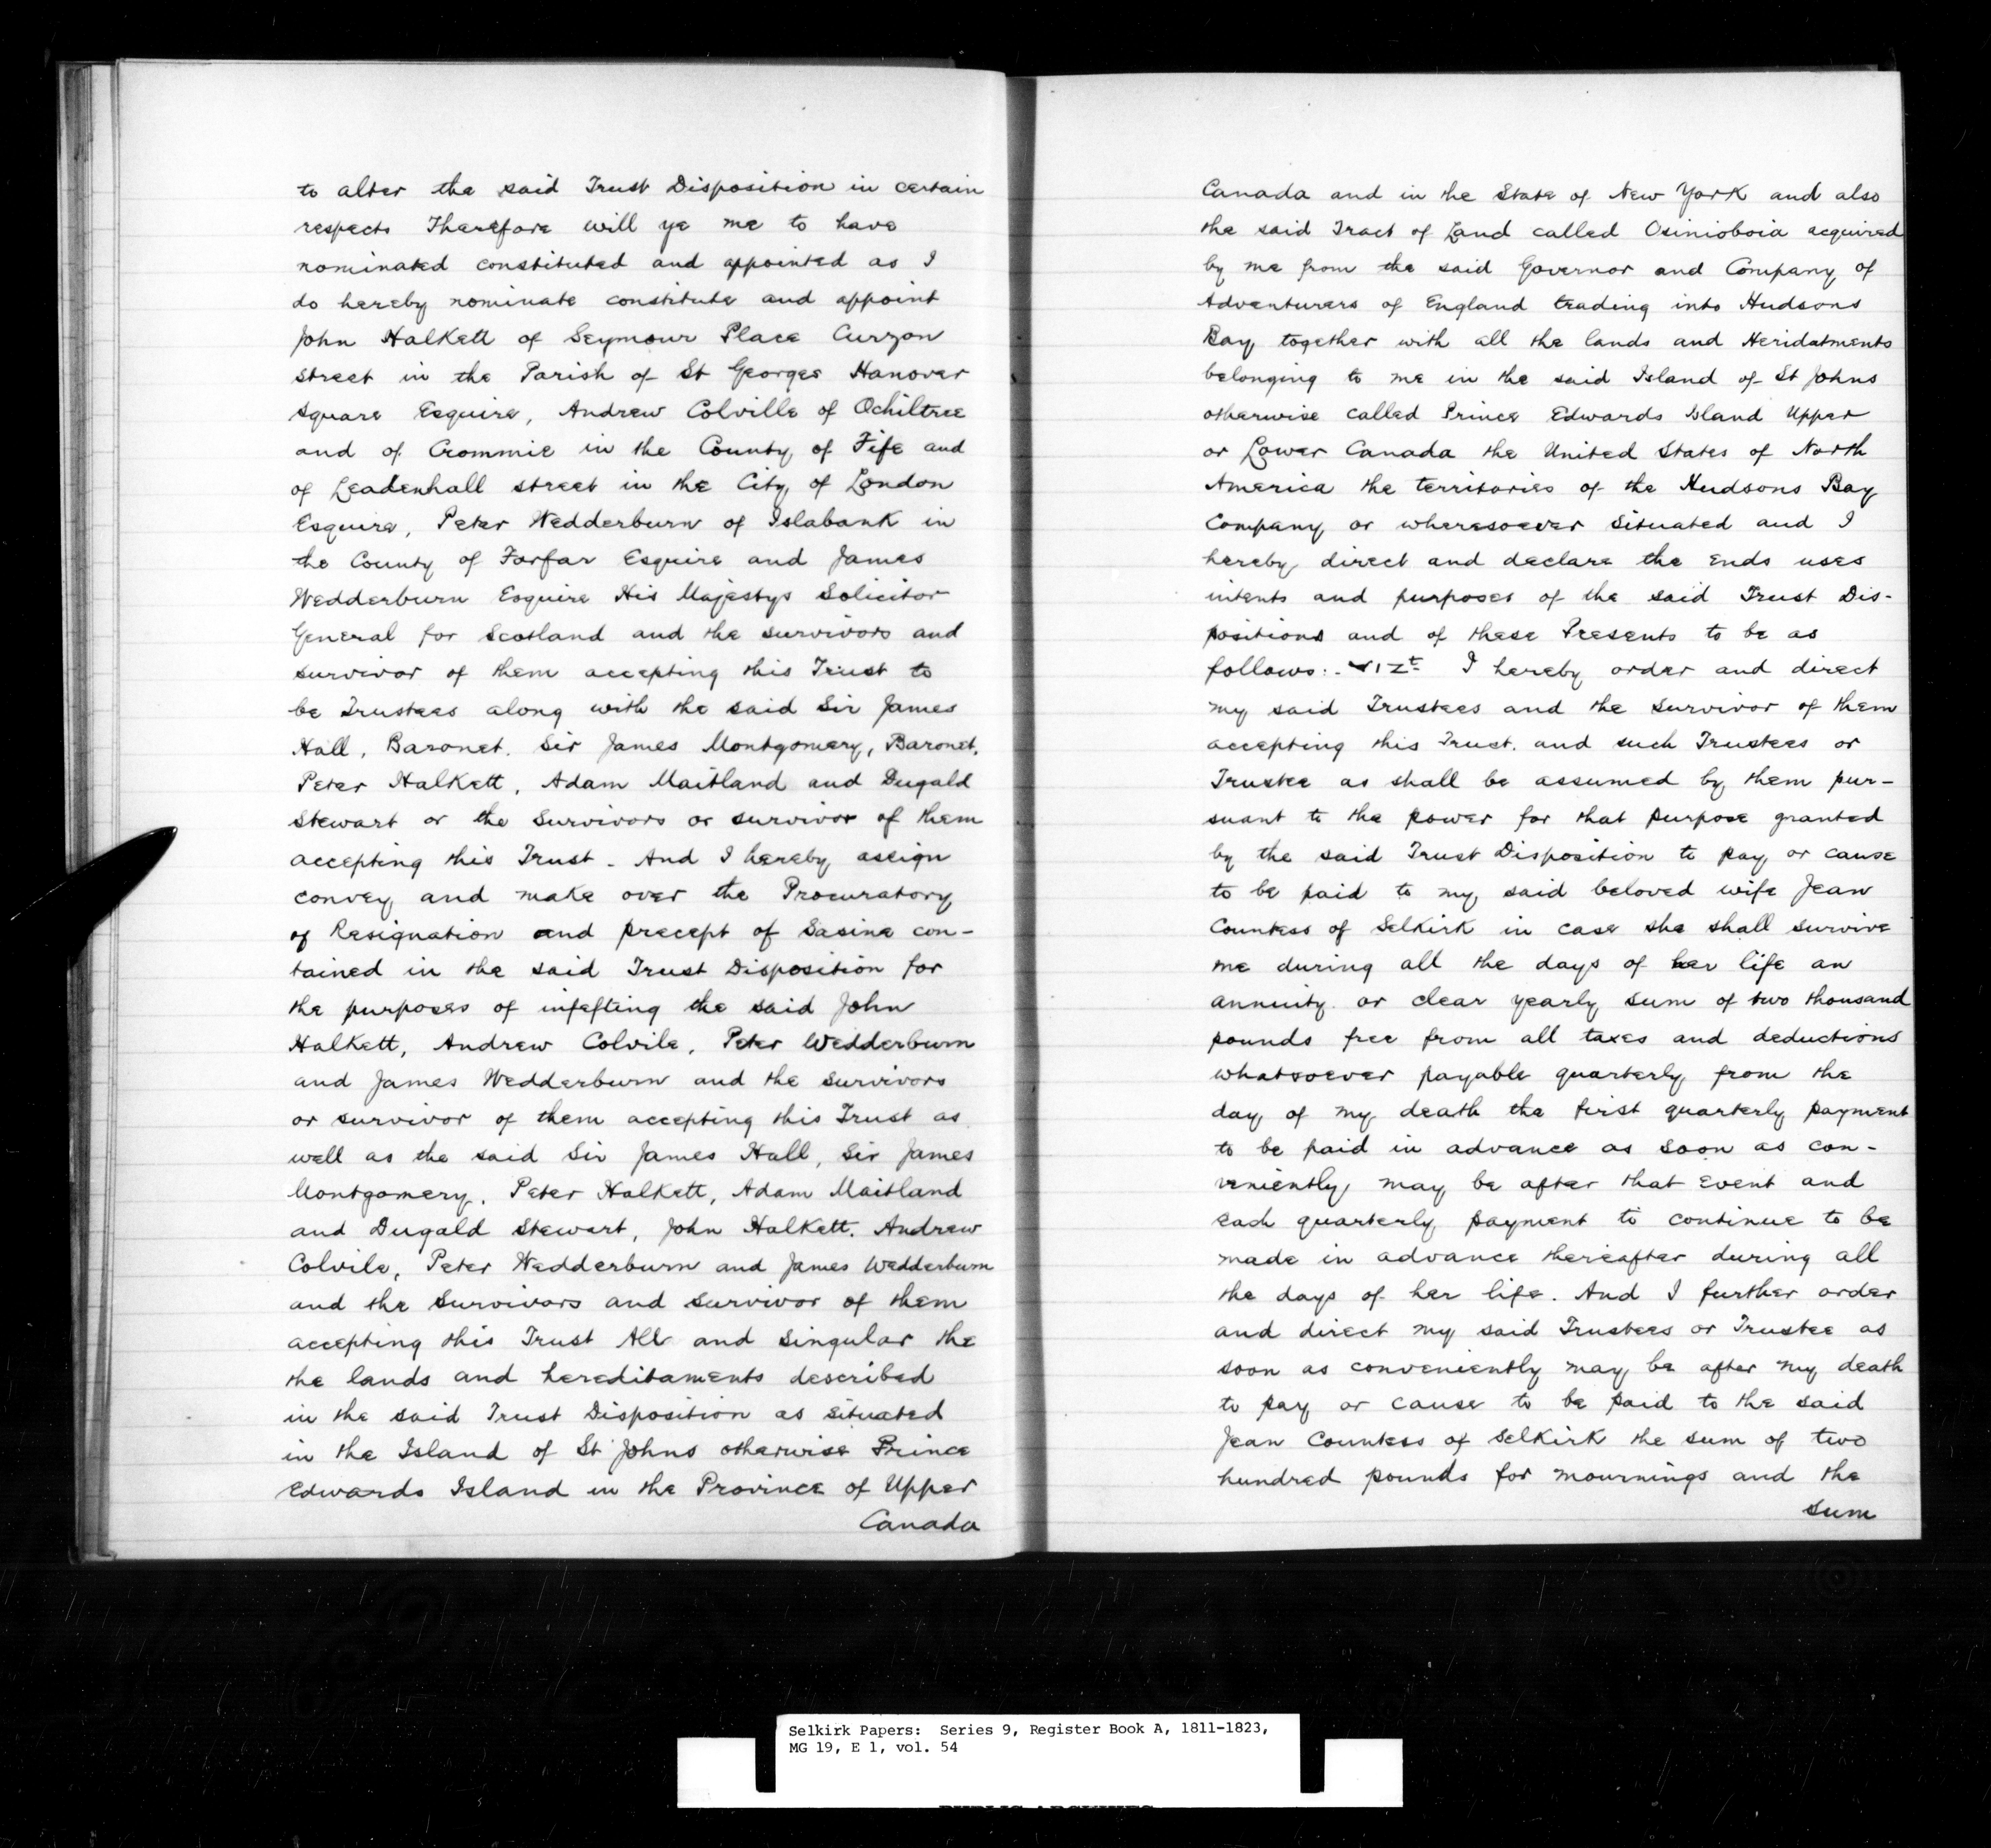 to alter the said Trust Disposition in certain
respects Therefore will ye me to have
nominated constituted and appointed as I
do hereby nominate constitute and appoint
John Halkett of Seymour Place Curzon
Street in the Parish of St Georges Hanover
Square Esquire, Andrew Colville of Ochiltree
and of Crommie in the County of Fife and
of Leadenhall street in the City of London
Esquire, Peter Wedderburn of Islabank in
the County of Forfar Esquire and James
Wedderburn Esquire His Majestys Solicitor
General for Scotland and the survivors and
survivor of them accepting this Trust to
be Trustees along with the said Sir James
Hall, Baronet. Sir James Montgomery, Baronet,
Peter Halkett, Adam Maitland and Dugald
Stewart or the Survivors or survivor of them
accepting this Trust - And I hereby assign
convey and make over the Procuratory
of Resignation and precept of Sasine con-
tained in the said Trust Disposition for
the purposes of infefting the said John
Halkett, Andrew Colvile, Peter Wedderburn
and James Wedderburn and the survivors
or survivor of them accepting this Trust as
well as the said Sir James Hall, Sir James
Montgomery, Peter Halkett, Adam Maitland
and Dugald Stewart, John Halkett. Andrew
Colvile, Peter Wedderburn and James Wedderburn
and the Survivors and Survivor of them
accepting this Trust All and Singular the
the lands and hereditaments described
in the said Trust Disposition as situated
in the Island of St Johns otherwise Prince
Edwards Island in the Province of Upper
Canada
Canada and in the State of New York and also
the said Tract of Land called Osinioboia acquired
by me from the said Governor and Company of
Adventurers of England trading into Hudsons
Bay together with all the lands and Heridatments
belonging to me in the said Island of St Johns
otherwise called Prince Edwards Island Upper
or Lower Canada the United States of North
America the territories of the Hudsons Bay
Company or wheresoever situated and I
hereby direct and declare the ends uses
intents and purposes of the said Trust Dis-
positions and of these Presents to be as
follows:- Vizt I hereby order and direct
my said Trustees and the Survivor of them
accepting this Trust. and such Trustees or
Trustee as shall be assumed by them pur-
suant to the power for that purpose granted
by the said Trust Disposition to pay or cause
to be paid to my said beloved wife Jean
Countess of Selkirk in case she shall survive
me during all the days of her life an
annuity or clear yearly sum of two thousand
pounds free from all taxes and deductions
whatsoever payable quarterly from the
day of my death the first quarterly payment
to be paid in advance as soon as con-
veniently may be after that event and
each quarterly payment to continue to be
made in advance thereafter during all
the days of her life. And I further order
and direct my said Trustees or Trustee as
soon as conveniently may be after my death
to pay or cause to be paid to the said
Jean Countess of Selkirk the sum of two
hundred pounds for mournings and the
sum
Selkirk Papers: Series 9, Register Book A, 1811-1823,
MG 19, E 1, vol. 54